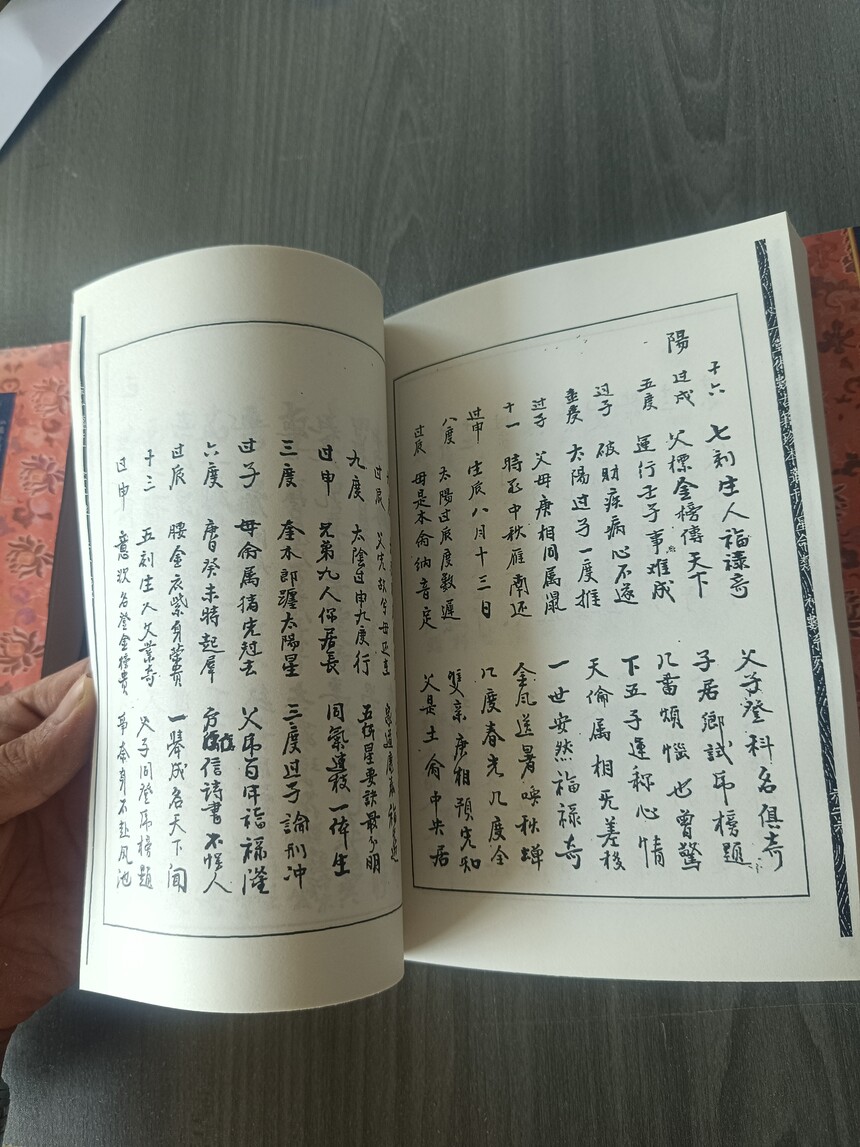 陽
十六 七刻生人福祿奇 父子登科名俱奇
过戍 父標金榜傳天下 子居鄉試吊榜題
五度 運行壬子事难成 几番煩惱也曾驚
过子 破財疾病心不遂 下五子運称心情
壹度 太陽过子一度推 天倫属相死差移
过子 父母庚相同属鼠 一世安然福祿奇
十一 時至中秋雁南还 金风送暑喚秋蟬
过申 生辰八月十三日 几度春光几度全
八度 太陽过辰度数遲 雙亲庚相預先知
过辰 母是木侖納音定 父是土侖中央居
过辰 父先故兮母还在
九度 太陰过申九度行 五行星要訣最分明
过申 兄弟九人你居長 同氣連枝一体生
三度 奎木郎躔太陽星 三度过子論刑冲
过子 母侖属猪先过去 父吊百年福祿隆
六度 癸未時起犀 信詩書不悮人
过辰 腰金衣紫身榮貴 一舉成名天下聞
十三 五刻生人父業奇 父子同登吊榜題
过申 意次名登金榜貴 革本身不赴凤池